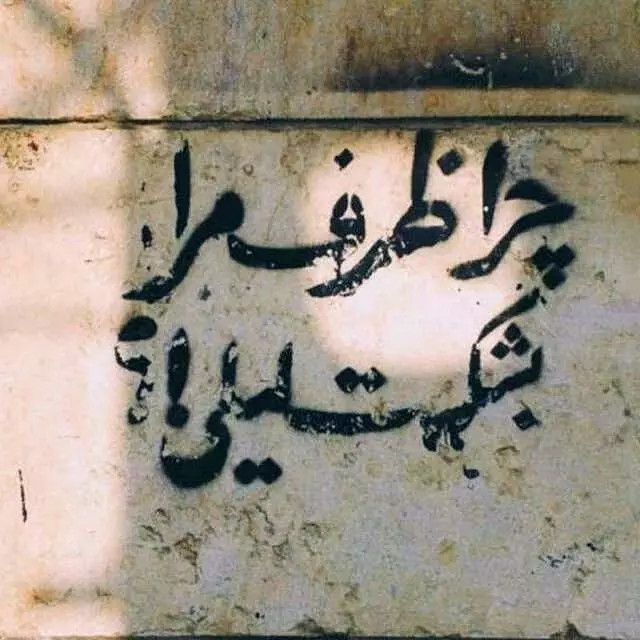 چرا ظرف مرا
بشکست لیلی!؟